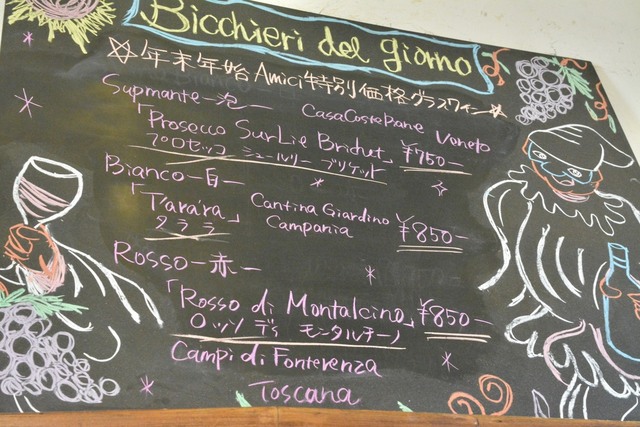 Bicchieri del giorno
☆年末年始Amici特別価格グラスワイン☆
Supmante—泡— CasaCostePiane Veneto
「Prosecco SurLie Brichet」 ¥750—
プロセッコ シュールリー ブリケット
Bianco—白—
「Tararà」 Cantina Giardino ¥850—
タララ Campania
Rosso—赤—
「Rosso di Montalcino」 ¥850—
ロッソ ディ モンタルチーノ
Campi di Fonterenza
Toscana